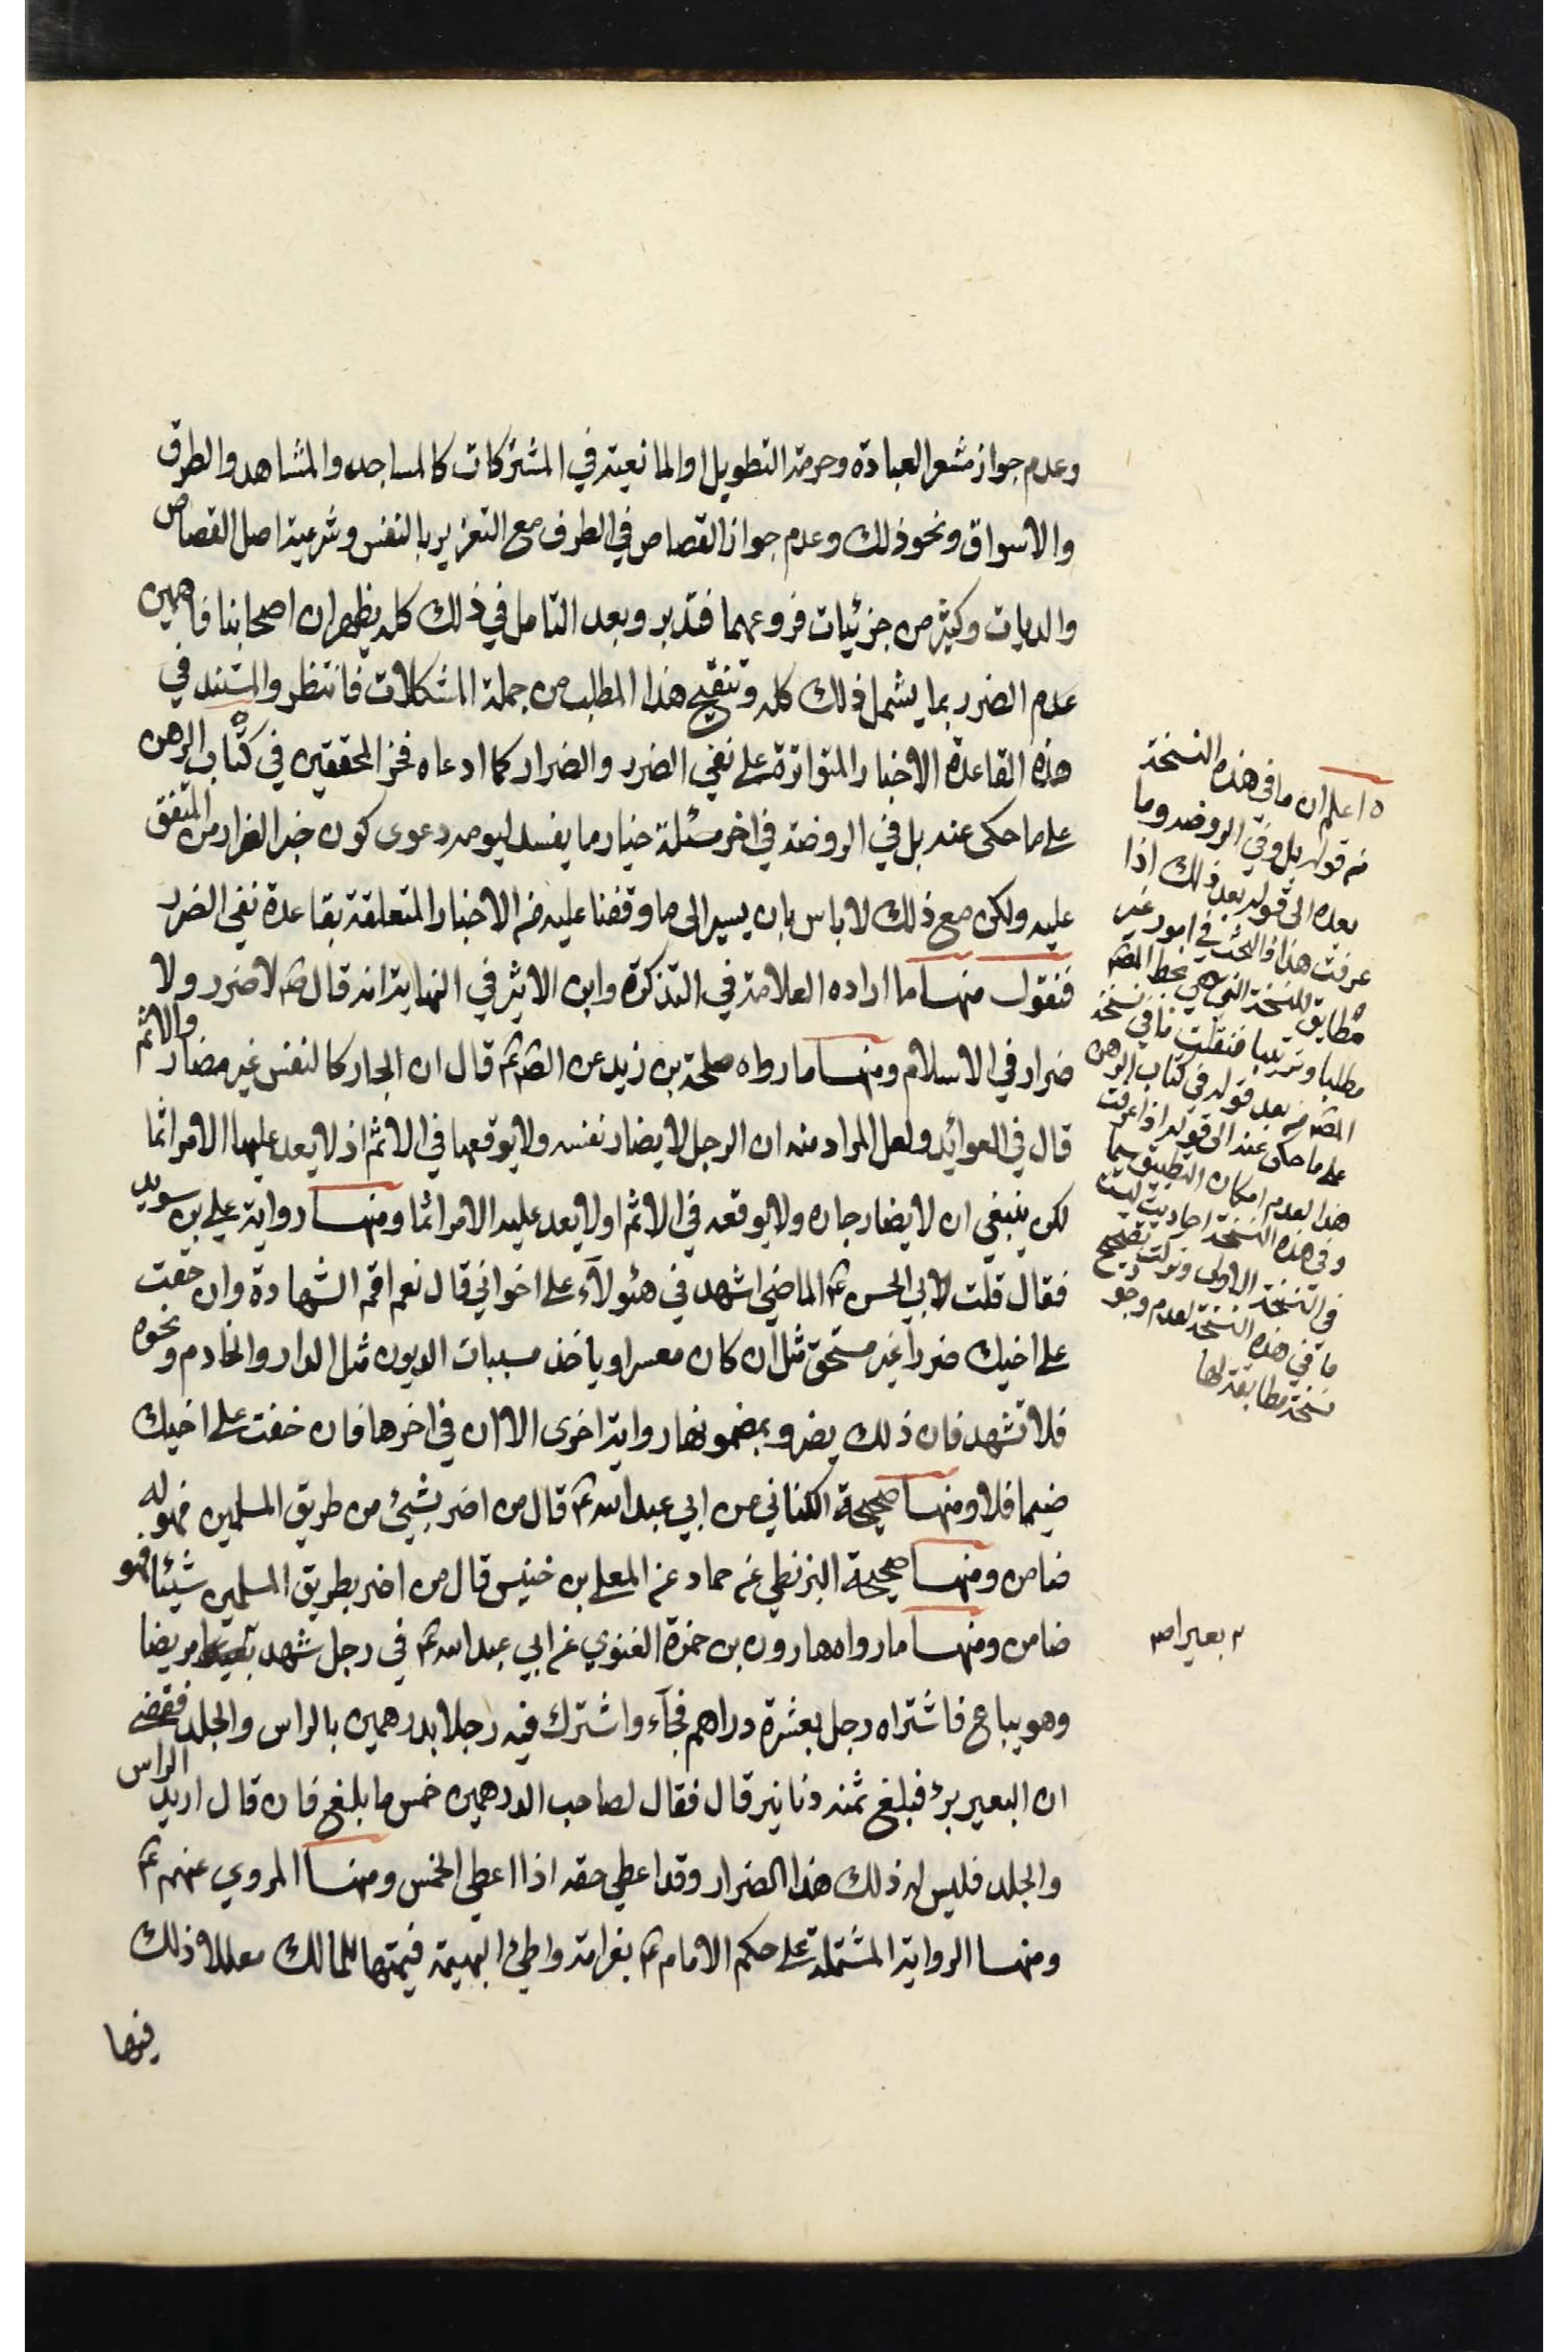 وعدم جواز مشعر العبادة وحرمة التطويل او المانعية في المشتركات كالمساجد والمشاهد والطرق
والاسواق ونحو ذلك وعدم جواز القصاص في الطرف مع التعزير بالنفس وشرعية اصل القصاص
والديات وكثير من جزئيات فروعهما فتدبر وبعد التامل في ذلك كله يظهر ان اصحابنا فاهمين
عدم الضرر بما يشمل ذلك كله وتنقيح هذا المطلب من جملة المشكلات فانتظر والمستند في
هذه القاعدة الاخبار المتواترة على نفي الضرر والضرار كما ادعاه فخر المحققين في كتاب الرهن
على ما حكى عنه بل في الروضة في اخر مسئلة خيار ما يفسد ليومه دعوى كون خبر الضرار من المتفق
عليه ولكن مع ذلك لا باس بان يسير الى ما وقفنا عليه من الاخبار المتعلقة بقاعدة نفي الضرر
فنقول منها ما اراده العلامة في التذكرة وابن الاثير في النهاية انه قال ص لا ضرر ولا
ضرار في الاسلام ومنها ما رواه طلحة بن زيد عن الصم ع قال ان الجار كالنفس غير مضار ولا اثم
قال في العوائد ولعل المراد منه ان الرجل لا يضار نفسه ولا يوقعها في الاثم اذ لا يعد عليها الامر اثما
لكن ينبغي ان لا يضار جاره ولا يوقعه في الاثم او لا يعد عليه الامر اثما ومنها رواية علي بن سويد
فقال قلت لابي الحسن ع الماضي اشهد في هئولآء على اخواني قال نعم اقم الشهادة وان خفت
على اخيك ضررا غير مستحق مثل ان كان معسرا وياخذ مسببات الديون مثل الدار والخادم ونحوه
فلا تشهد فان ذلك يضر وبمضمونها رواية اخرى الا ان في اخرها فان خفت على اخيك
ضيما فلا ومنها صحيحة الكناني عن ابي عبد الله ع قال من اضر بشيئ من طريق المسلمين فهو له
ضامن ومنها صحيحة البزنطي عن حماد عن المعلى بن خنيس قال من اضر بطريق المسلمين شيئا فهو
ضامن ومنها ما رواه هارون بن حمزة الغنوي عن ابي عبد الله ع في رجل شهد بعيرا مريضا
وهو يباع فاشتراه رجل بعشرة دراهم فجآء واشترك فيه رجلا بدرهمين بالراس والجلد فقضى
ان البعير برئ فبلغ ثمنه دنانير قال فقال لصاحب الدرهمين خمس ما بلغ فان قال اريد الراس
والجلد فليس له ذلك هذا الضرار وقد اعطي حقه اذا اعطي الخمس ومنها المروي عنهم ع
ومنها الرواية المشتملة على حكم الامام ع بغرامة واطئ البهيمة قيمتها للمالك معللا ذلك
فيها
ه اعلم ان ما في هذه النسخة
من قوله بل وفي الروضه وما
بعده الى قوله بعد ذلك اذا
عرفت هذا فالبحث في امور غير
مطابق للنسخة التي هي بخط المصم
مطلبا وترتيبا فنقلت ما في نسخة
المصم من بعد قوله في كتاب الرهن
على ما حكى عنه الى قوله اذا عرفت
هذا لعدم امكان التطبيق سيما
وفي هذه النسخة احاديث ليست
في النسخة الاولى وتركت تصحيح
ما في هذه النسخة لعدم وجود
نسخة مطابقة لها
بعيرا صح